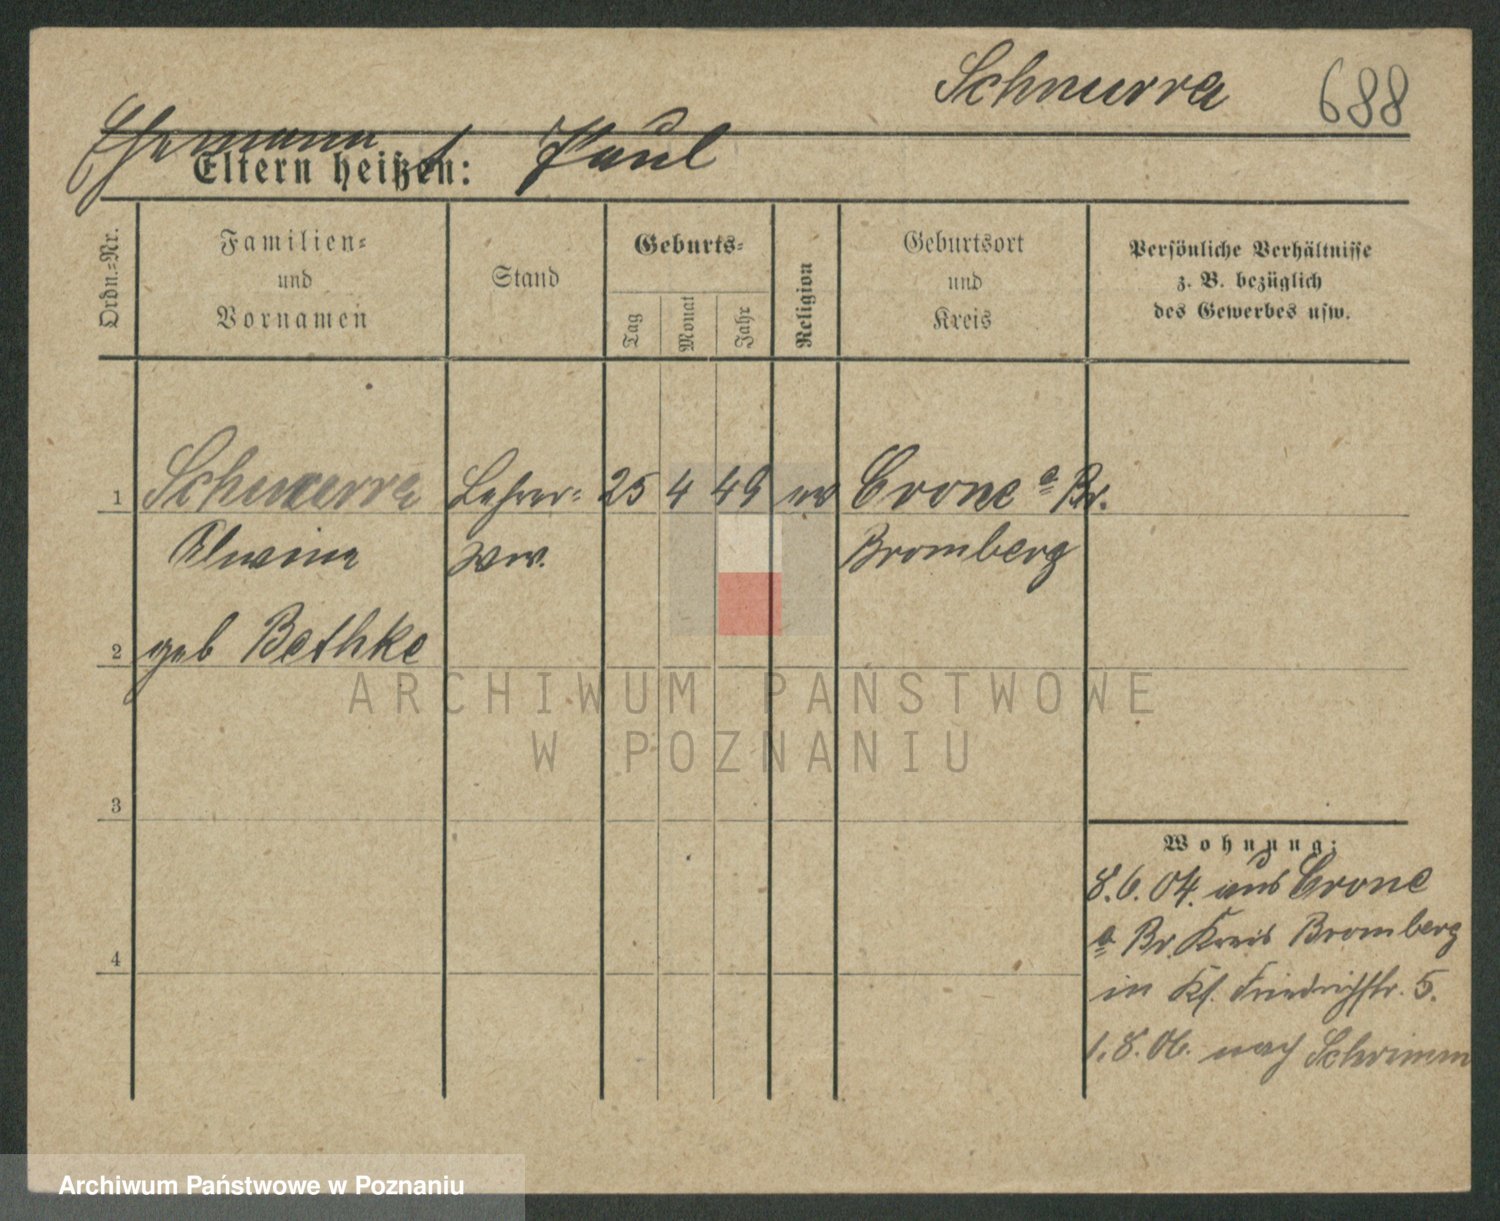 Schnurra 688
Ehemann † Paul
Eltern heißen:
Ordn.-Nr.
Familien-
und
Vornamen
Stand
Geburts-
Tag
Monat
Jahr
Religion
Geburtsort
und
Kreis
Persönliche Verhältnisse
z. B. bezüglich
des Gewerbes usw.
1 Schnurra Lehrer- 25 4 49 ev Crone a Br.
Alwine Ww. Bromberg
2 geb Bethke
ARCHIWUM PAŃSTWOWE
W POZNANIU
3
4
Wohnung:
8.6.04. aus Crone
a Br. Kreis Bromberg
in Kf. Friedrichstr. 5.
1.8.06. nach Schrimm
Archiwum Państwowe w Poznaniu